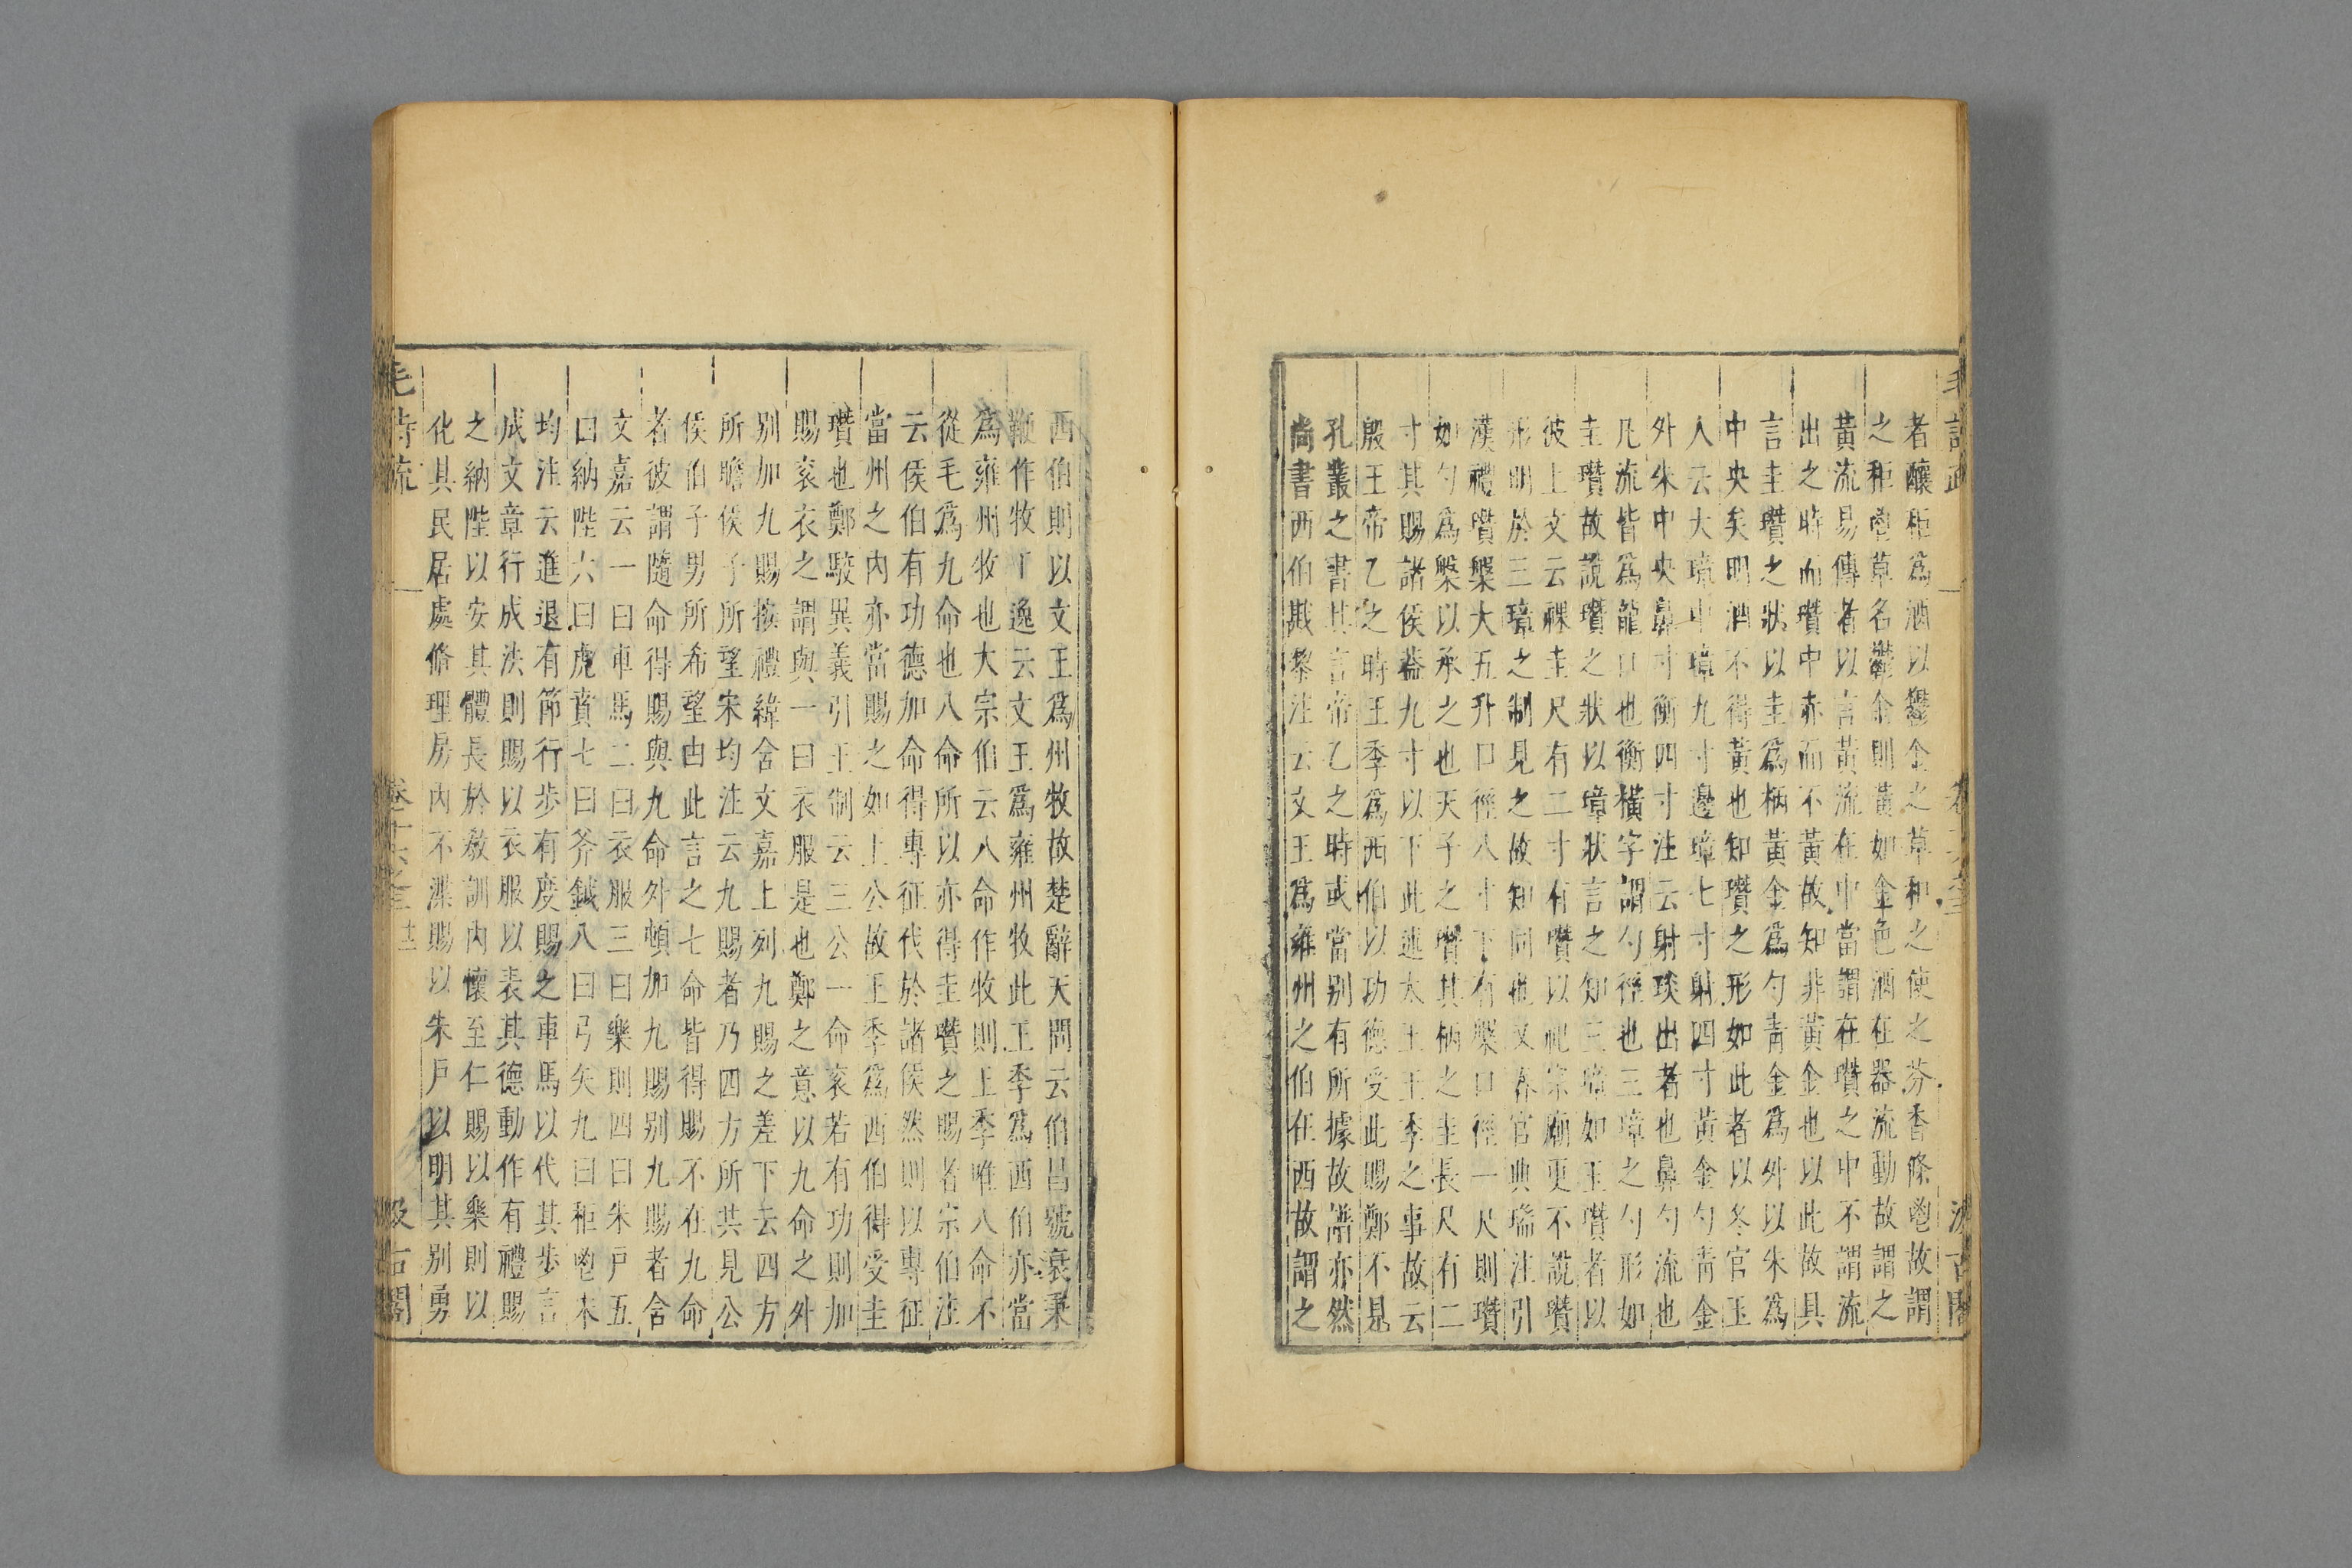 者釀秬爲酒以鬱金之草和之使之芬香條鬯故謂
之秬鬯草名鬱金則黃如金色酒在器流動故謂之
黃流易傳者以言黃流在中當謂在瓚之中不謂流
出之時而瓚中赤而不黃故知非黃金也以此故具
言圭瓚之狀以圭爲柄黃金爲勺青金爲外以朱爲
中央矣明酒不得黃也知瓚之形如此者以冬官玉
人云大璋中璋九寸邊璋七寸射四寸黃金勺青金
外朱中央鼻寸衡四寸注云射琰出者也鼻勺流也
凡流皆爲龍口也衡橫字謂勺徑也三璋之勺形如
圭瓚故說瓚之狀以璋狀言之知三璋如玉瓚者以
彼上文云祼圭尺有二寸有瓚以祀宗廟更不說瓚
形明於三璋之制見之故知同也又春官典瑞注引
漢禮瓚槃大五升口徑八寸下有槃口徑一尺則瓚
如勺爲槃以承之也天子之瓚其柄之圭長尺有二
寸其賜諸侯蓋九寸以下此述大王王季之事故云
殷王帝乙之時王季爲西伯以功德受此賜鄭不見
孔叢之書其言帝乙之時或當別有所據故譜亦然
尚書西伯戡黎注云文王爲雍州之伯在西故謂之
西伯則以文王爲州牧故楚辭天問云伯昌號衰秉
鞭作牧丁逸云文王爲雍州牧此王季爲西伯亦當
爲雍州牧也大宗伯云八命作牧則王季唯八命不
從毛爲九命也八命所以亦得圭瓚之賜者宗伯注
云侯伯有功德加命得專征代於諸侯然則以專征
當州之內亦當賜之如上公故王季爲西伯得受圭
瓚也鄭駮異義引王制云三公一命袞若有功則加
賜袞衣之謂與一曰衣服是也鄭之意以九命之外
別加九賜按禮緯含文嘉上列九賜之差下云四方
所瞻侯子所望宋均注云九賜者乃四方所共見公
侯伯子男所希望由此言之七命皆得賜不在九命
者彼謂隨命得賜與九命外頓加九賜別九賜者含
文嘉云一曰車馬二曰衣服三曰樂則四曰朱戶五
曰納陛六曰虎賁七曰斧鉞八曰弓矢九曰秬鬯宋
均注云進退有節行步有度賜之車馬以代其步言
成文章行成法則賜以衣服以表其德動作有禮賜
之納陛以安其體長於教訓內懷至仁賜以樂則以
化其民居處脩理房內不渫賜以朱戶以明其別勇
毛詩疏
汲古閣